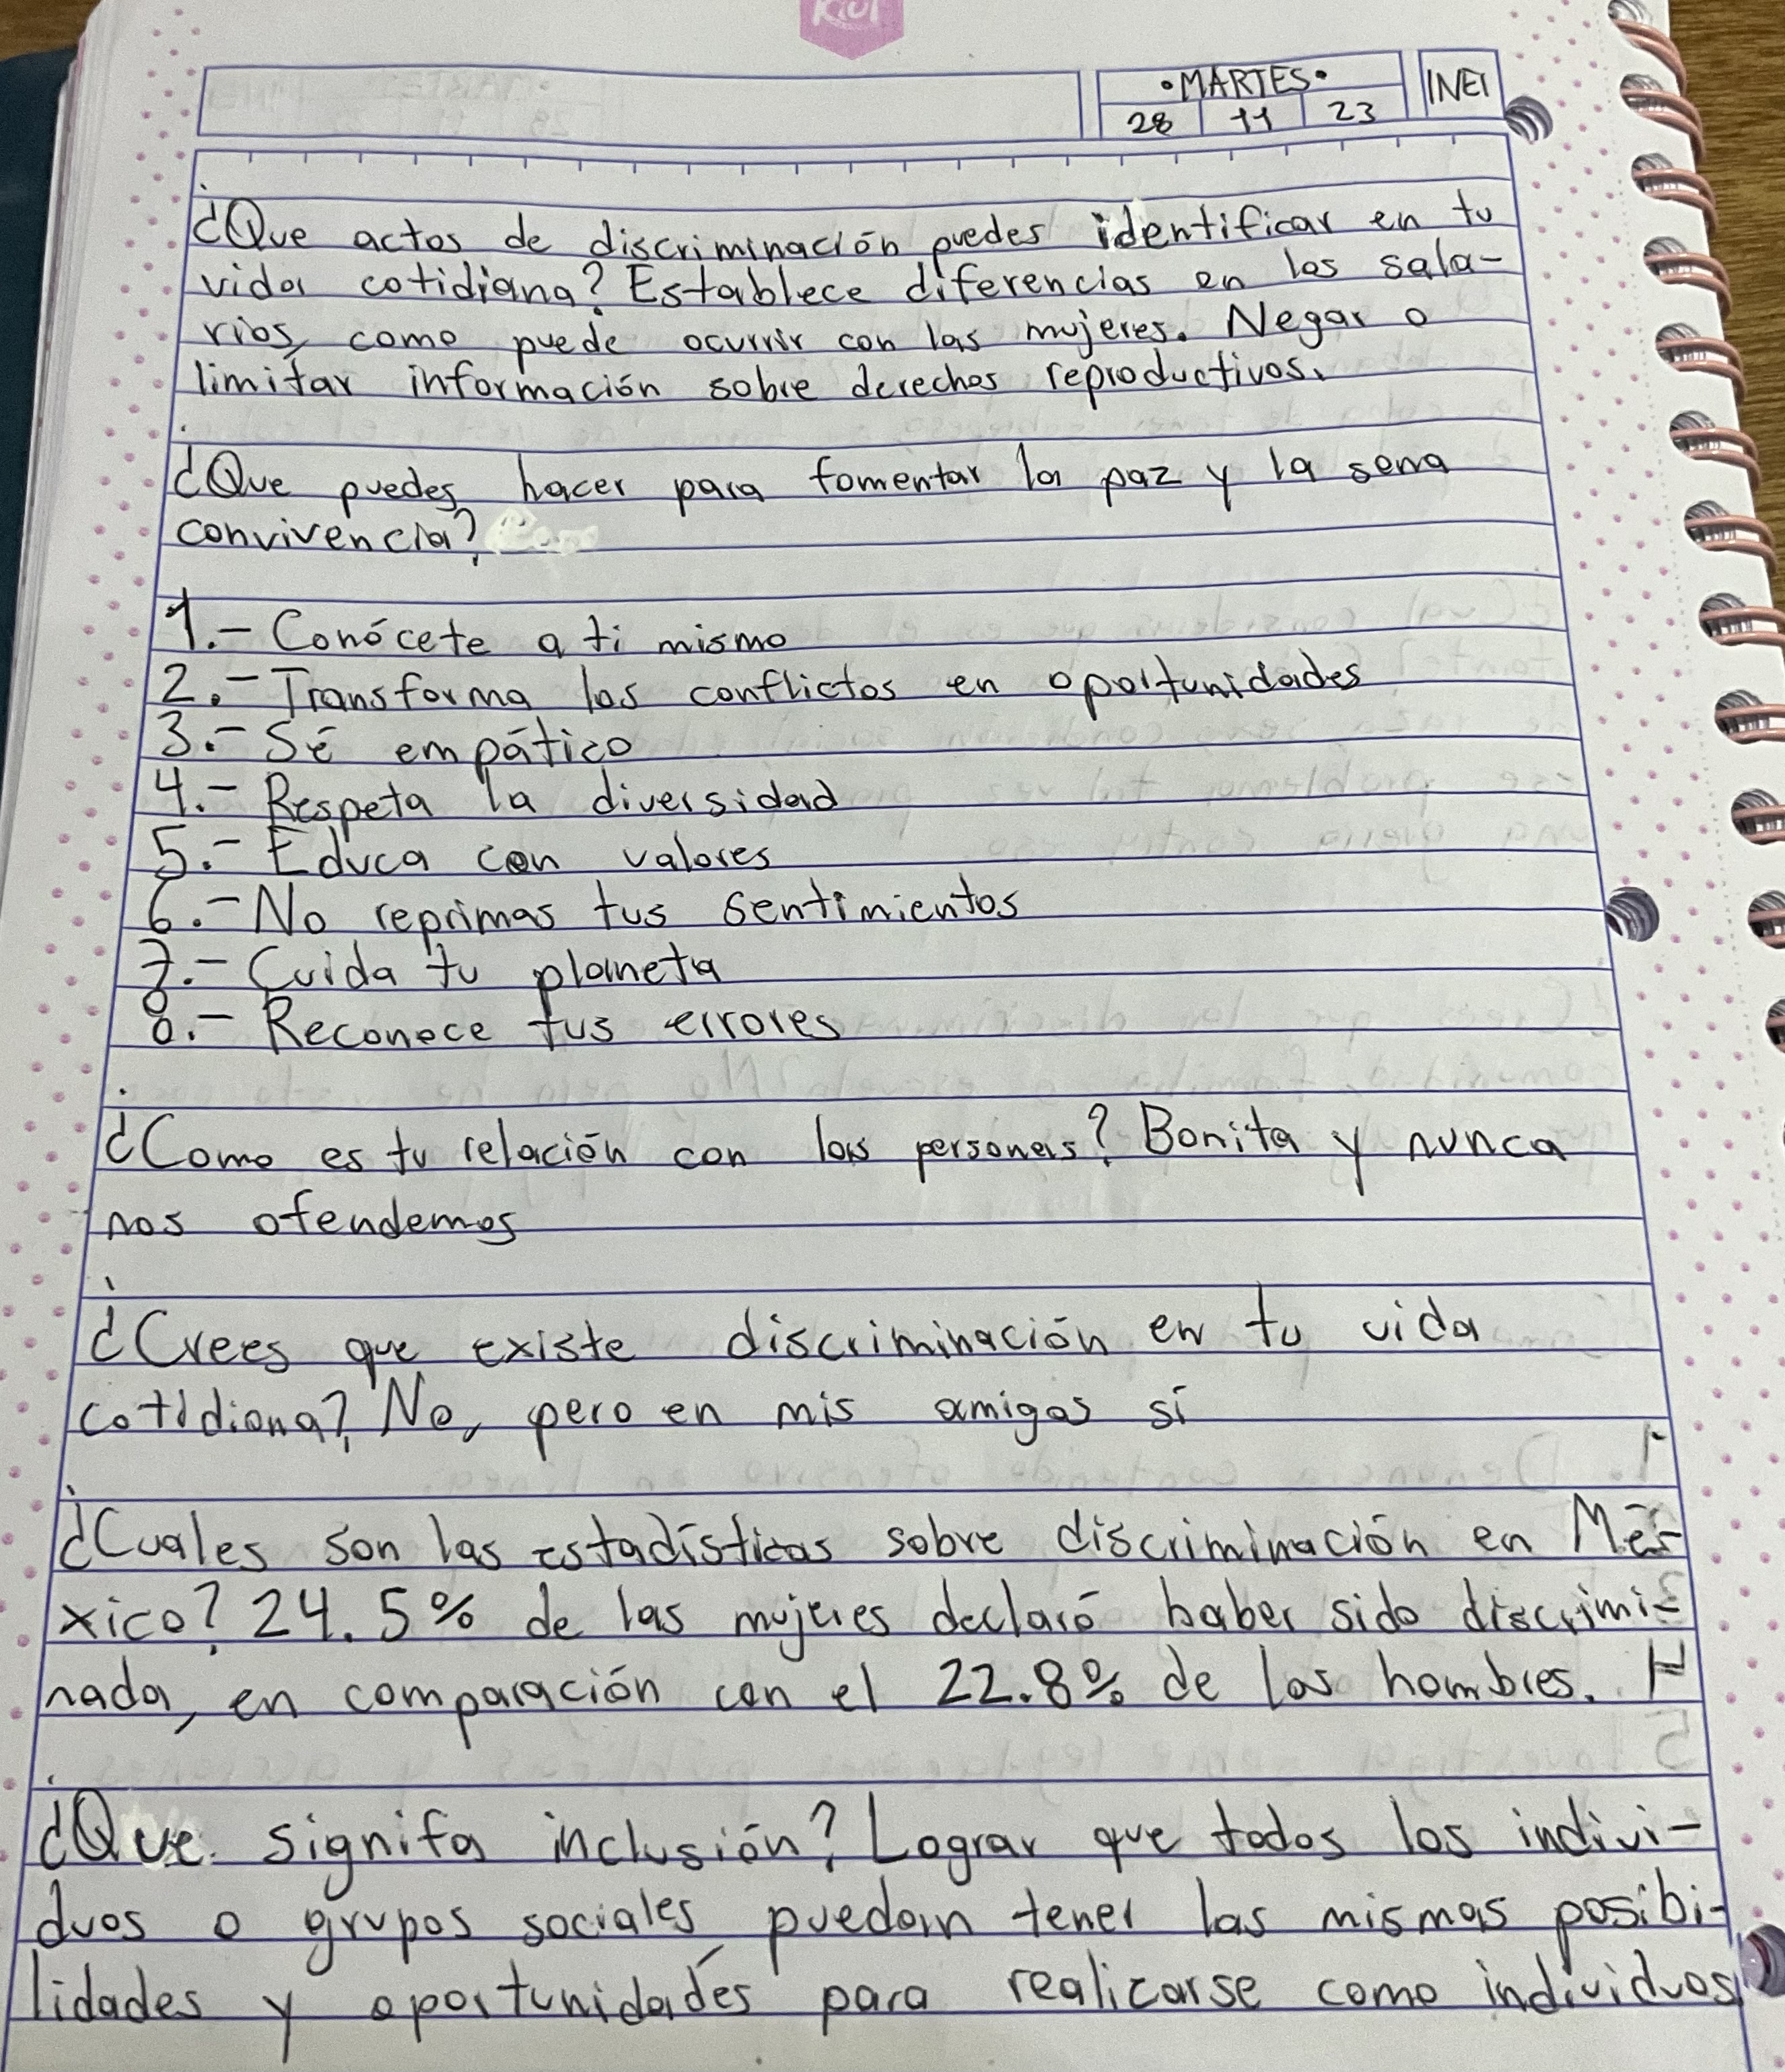 KIUT
•MARTES•
28 11 23
INEI
¿Que actos de discriminación puedes identificar en tu
vida cotidiana? Establece diferencias en los sala-
rios, como puede ocurrir con las mujeres. Negar o
limitar información sobre derechos reproductivos.
¿Que puedes hacer para fomentar la paz y la sena
convivencia?
1.- Conócete a ti mismo
2.- Transforma los conflictos en oportunidades
3.- Sé empático
4.- Respeta la diversidad
5.- Educa con valores
6.- No reprimas tus sentimientos
7.- Cuida tu planeta
8.- Reconoce tus errores
¿Como es tu relación con las personas? Bonita y nunca
nos ofendemos
¿Crees que existe discriminación en tu vida
cotidiana? No, pero en mis amigos sí
¿Cuales son las estadísticas sobre discriminación en Mé-
xico? 24.5% de las mujeres declaró haber sido discrimi-
nada, en comparación con el 22.8% de los hombres.
¿Que signifa inclusión? Lograr que todos los indivi-
duos o grupos sociales, puedan tener las mismas posibi-
lidades y oportunidades para realicarse como individuos